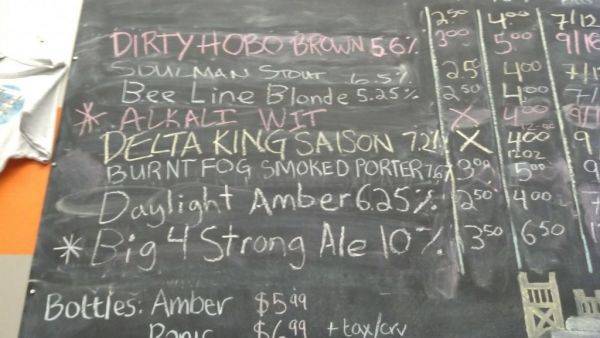 2.50 4.00 7/12
DIRTY HOBO BROWN 5.6% 3.00 5.00 9/16
SOUL MAN STOUT 6.5% 2.5 4.00
Bee Line Blonde 5.25% 2.50 4.00 7/
* ALKALI WIT X 4.00
12 oz
DELTA KING SAISON 7.2% X 4.00 9
12 oz
BURNT FOG SMOKED PORTER 3.00 5.00 9
Daylight Amber 6.25% 2.50 4.00 7
* Big 4 Strong Ale 10% 3.50 6.50
Bottles: Amber $5.99
Panic $6.99 + tax/crv